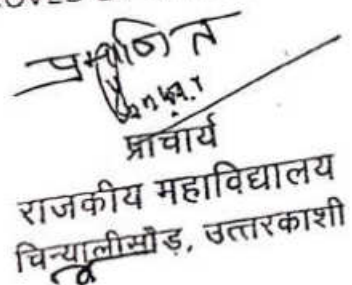 प्रमाणित
प्राचार्य
राजकीय महाविद्यालय
चिन्यालीसौड़, उत्तरकाशी